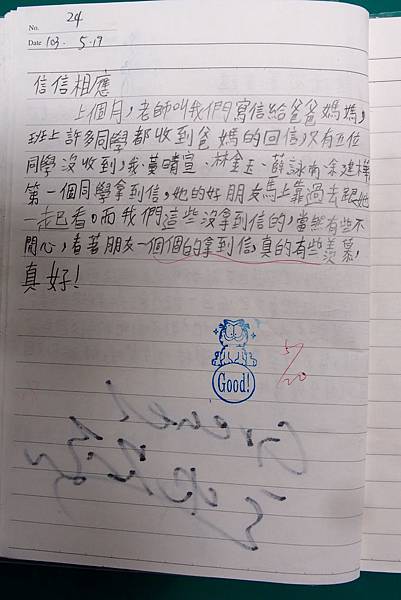 No. 24
Date 103. 5.19
信信相應
上個月，老師叫我們寫信給爸爸媽媽，
班上許多同學都收到爸媽的回信，只有五位
同學沒收到，我、黃晴宣、林金玉、薛詠
第一個同學拿到信，她的好朋友馬上靠過去跟她
一起看。而我們這些沒拿到信的，當然有些不
開心，看著朋友一個個的拿到信，真的有些羨慕，
真好！
Good!
5/20